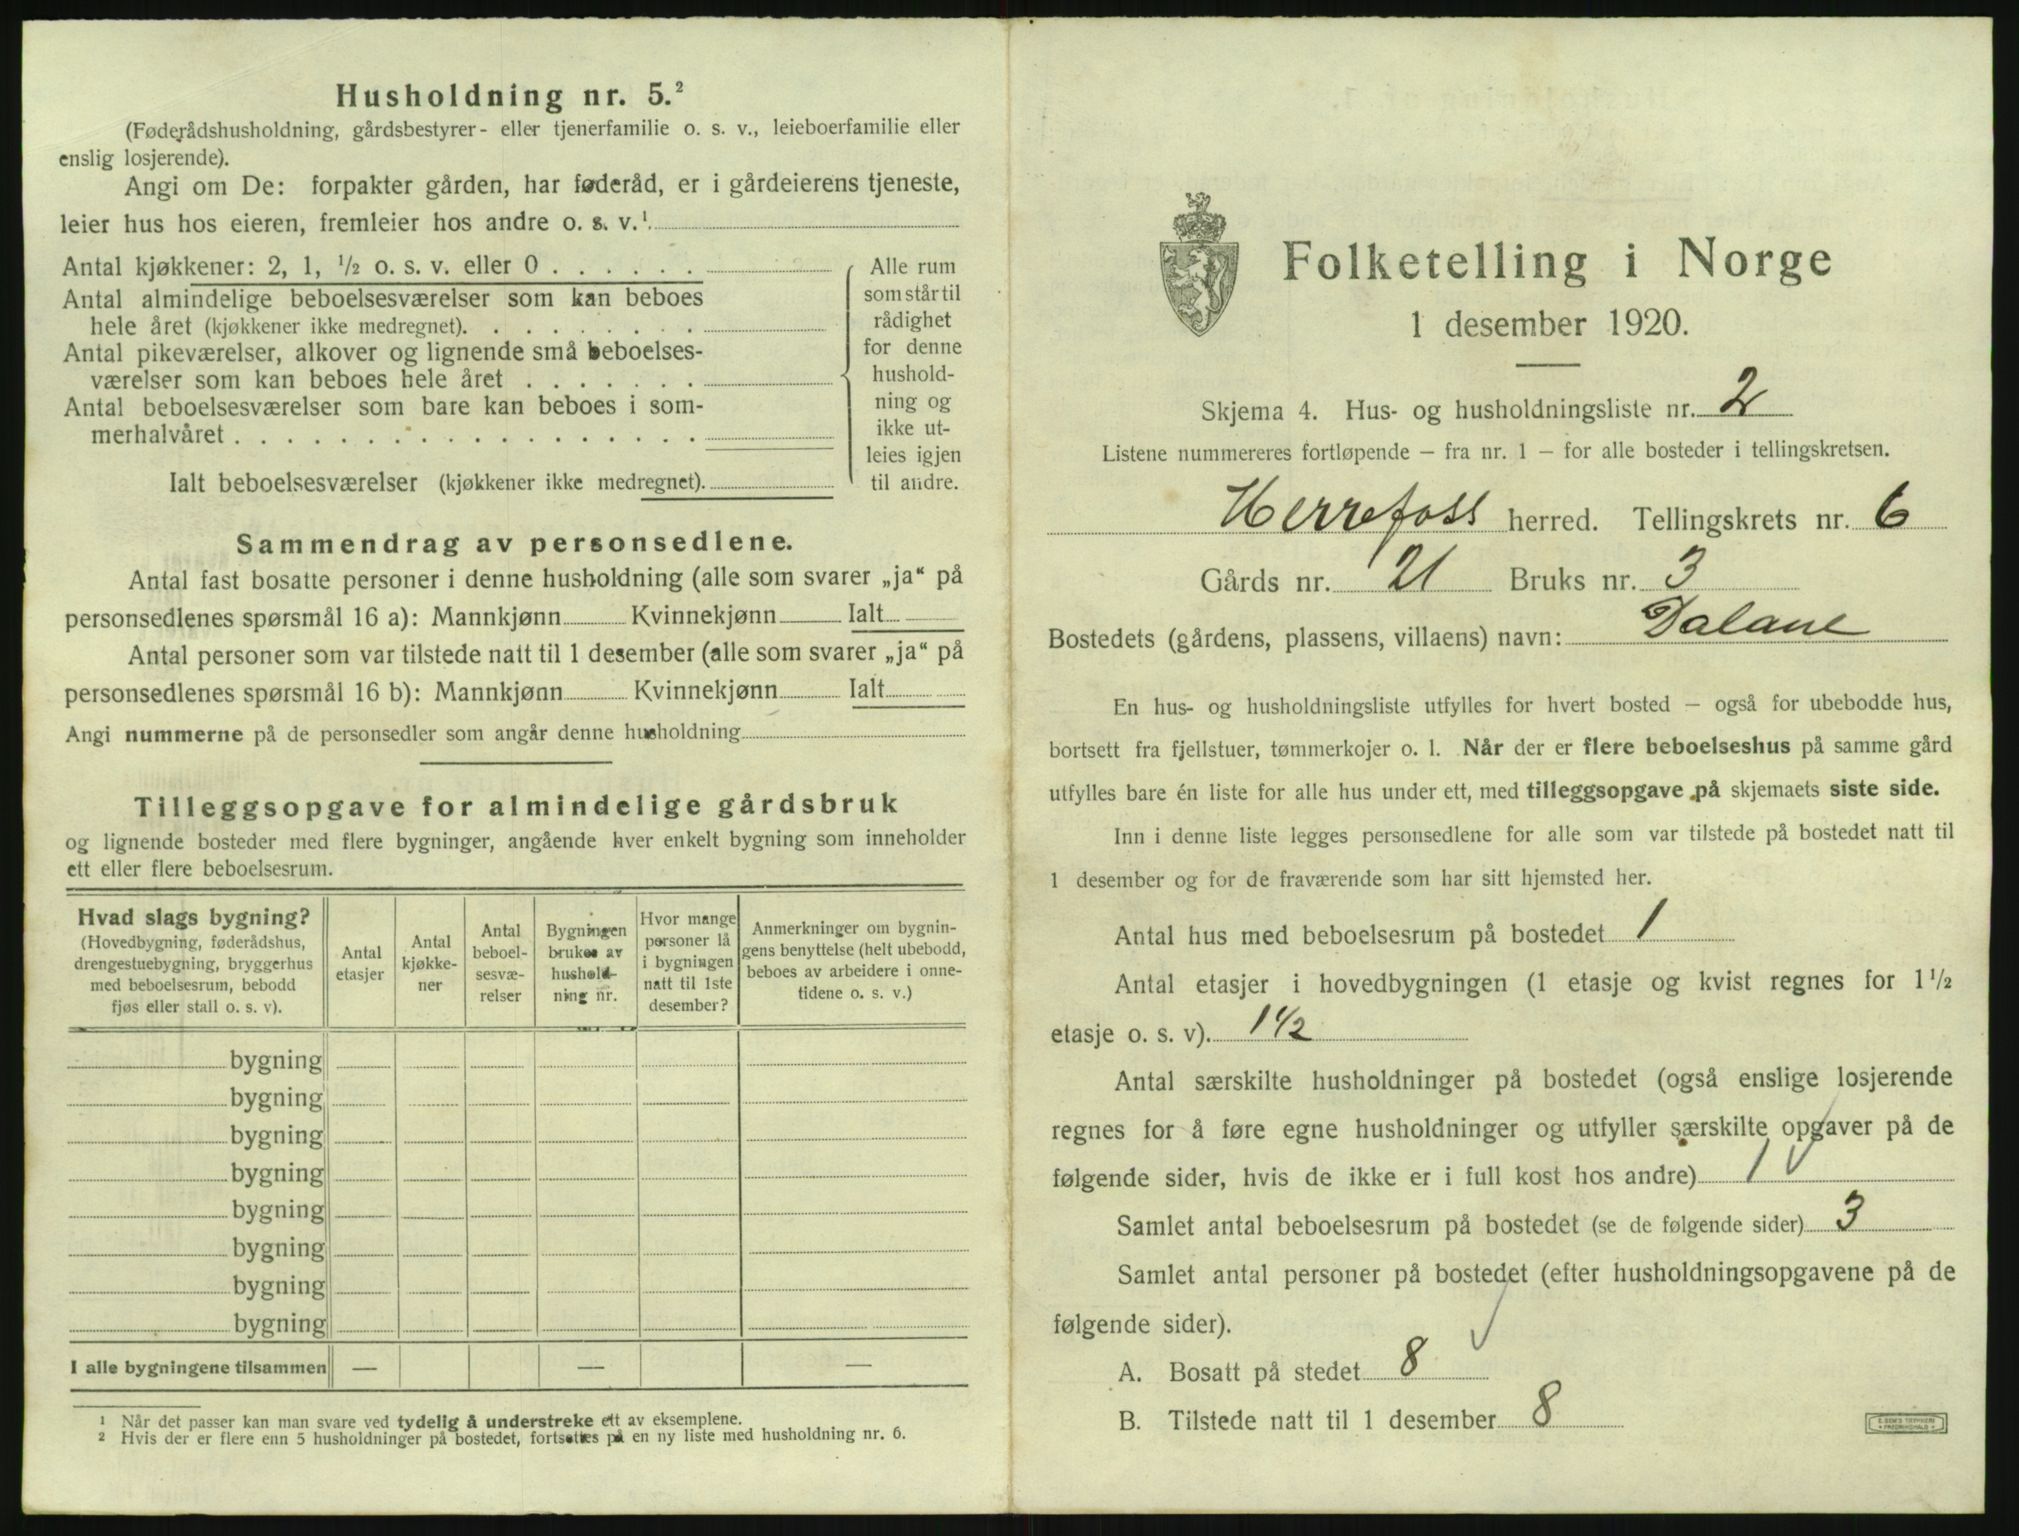 Husholdning nr. 5.²
(Føderådshusholdning, gårdsbestyrer- eller tjenerfamilie o. s. v., leieboerfamilie eller
enslig losjerende).
Angi om De: forpakter gården, har føderåd, er i gårdeierens tjeneste,
leier hus hos eieren, fremleier hos andre o. s. v.¹
Antal kjøkkener: 2, 1, ½ o. s. v. eller 0 . . . . . .
Antal almindelige beboelsesværelser som kan beboes
hele året (kjøkkener ikke medregnet). . . . . . . . .
Antal pikeværelser, alkover og lignende små beboelses-
værelser som kan beboes hele året . . . . . . .
Antal beboelsesværelser som bare kan beboes i som-
merhalvåret . . . . . . . . . . . . . . . . . .
Ialt beboelsesværelser (kjøkkener ikke medregnet).
Alle rum
som står til
rådighet
for denne
hushold-
ning og
ikke ut-
leies igjen
til andre.
Sammendrag av personsedlene.
Antal fast bosatte personer i denne husholdning (alle som svarer „ja“ på
personsedlenes spørsmål 16 a): Mannkjønn Kvinnekjønn Ialt
Antal personer som var tilstede natt til 1 desember (alle som svarer „ja“ på
personsedlenes spørsmål 16 b): Mannkjønn Kvinnekjønn Ialt
Angi nummerne på de personsedler som angår denne husholdning
Tilleggsopgave for almindelige gårdsbruk
og lignende bosteder med flere bygninger, angående hver enkelt bygning som inneholder
ett eller flere beboelsesrum.
Hvad slags bygning?
(Hovedbygning, føderådshus,
drengestuebygning, bryggerhus
med beboelsesrum, bebodd
fjøs eller stall o. s. v).
Antal
etasjer
Antal
kjøkke-
ner
Antal
beboel-
sesvæ-
relser
Bygningen
brukes av
hushold-
ning nr.
Hvor mange
personer lå
i bygningen
natt til 1ste
desember?
Anmerkninger om bygnin-
gens benyttelse (helt ubebodd,
beboes av arbeidere i onne-
tidene o. s. v.)
bygning
bygning
bygning
bygning
bygning
bygning
bygning
bygning
I alle bygningene tilsammen — — —
¹ Når det passer kan man svare ved tydelig å understreke ett av eksemplene.
² Hvis der er flere enn 5 husholdninger på bostedet, fortsettes på en ny liste med husholdning nr. 6.
Folketelling i Norge
1 desember 1920.
Skjema 4. Hus- og husholdningsliste nr. 2
Listene nummereres fortløpende — fra nr. 1 — for alle bosteder i tellingskretsen.
Herrefoss herred. Tellingskrets nr. 6
Gårds nr. 21 Bruks nr. 3
Bostedets (gårdens, plassens, villaens) navn: Dalane
En hus- og husholdningsliste utfylles for hvert bosted — også for ubebodde hus,
bortsett fra fjellstuer, tømmerkojer o. l. Når der er flere beboelseshus på samme gård
utfylles bare én liste for alle hus under ett, med tilleggsopgave på skjemaets siste side.
Inn i denne liste legges personsedlene for alle som var tilstede på bostedet natt til
1 desember og for de fraværende som har sitt hjemsted her.
Antal hus med beboelsesrum på bostedet 1
Antal etasjer i hovedbygningen (1 etasje og kvist regnes for 1½
etasje o. s. v). 1½
Antal særskilte husholdninger på bostedet (også enslige losjerende
regnes for å føre egne husholdninger og utfyller særskilte opgaver på de
følgende sider, hvis de ikke er i full kost hos andre) 1
Samlet antal beboelsesrum på bostedet (se de følgende sider) 3
Samlet antal personer på bostedet (efter husholdningsopgavene på de
følgende sider).
A. Bosatt på stedet 8
B. Tilstede natt til 1 desember 8